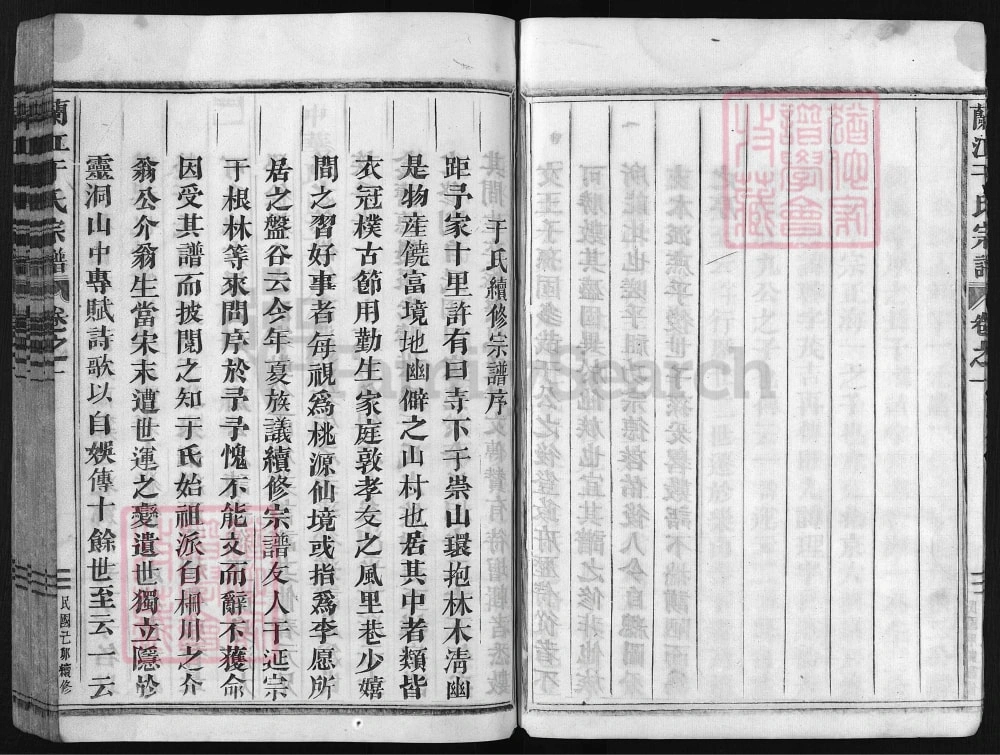 蘭江于氏宗譜 卷之一
于氏續修宗譜序
距予家十里許有曰寺下于崇山環抱林木淸幽
是物產饒富境地幽僻之山村也居其中者類皆
衣冠樸古節用勤生家庭敦孝友之風里巷少嬉
間之習好事者每視爲桃源仙境或指爲李愿所
居之盤谷云今年夏族議續修宗譜友人于延宗
于根林等來問序於予予愧不能文而辭不獲命
因受其譜而披閱之知于氏始祖派自柵川之介
翁公介翁生當宋末遭世運之變遺世獨立隱於
靈洞山中專賦詩歌以自娛傳十餘世至云一云
蘭江于氏宗譜 卷之一
民國己卯續修